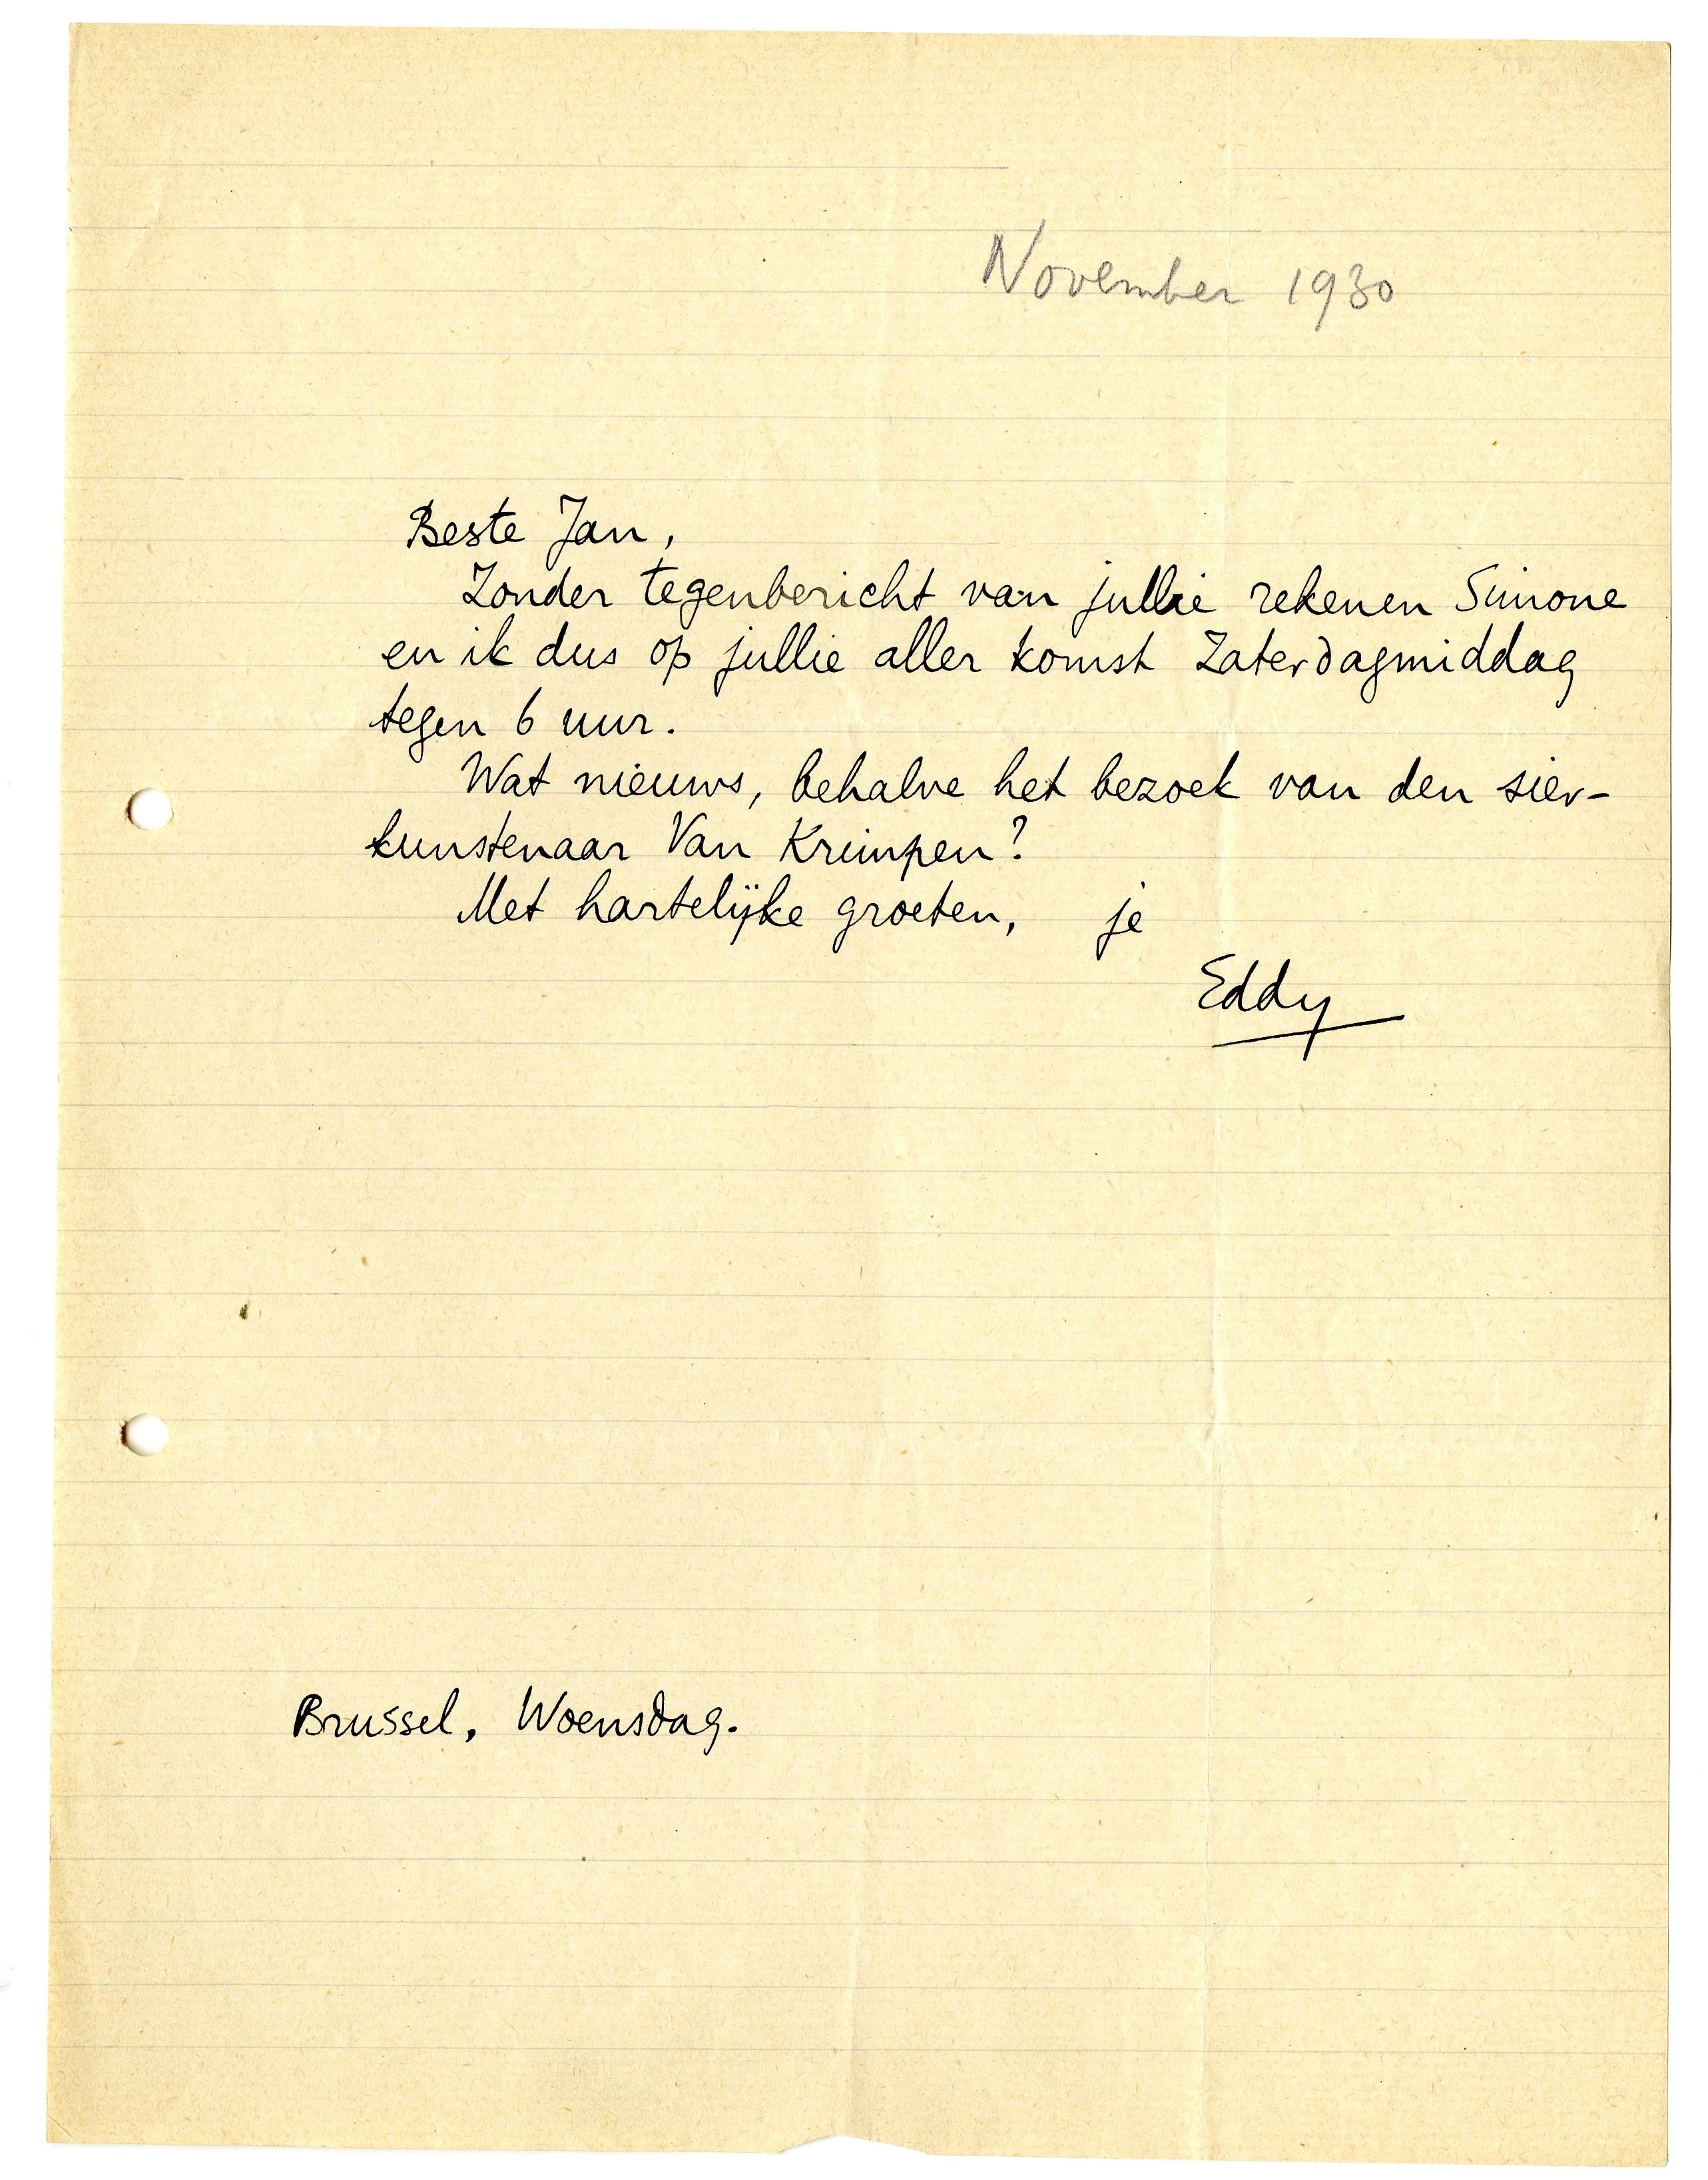 November 1930
Beste Jan,
Zonder tegenbericht van jullie rekenen Simone
en ik dus op jullie aller komst Zaterdagmiddag
tegen 6 uur.
Wat nieuws, behalve het bezoek van den sier-
kunstenaar Van Krimpen?
Met hartelijke groeten, je
Eddy
Brussel, Woensdag.